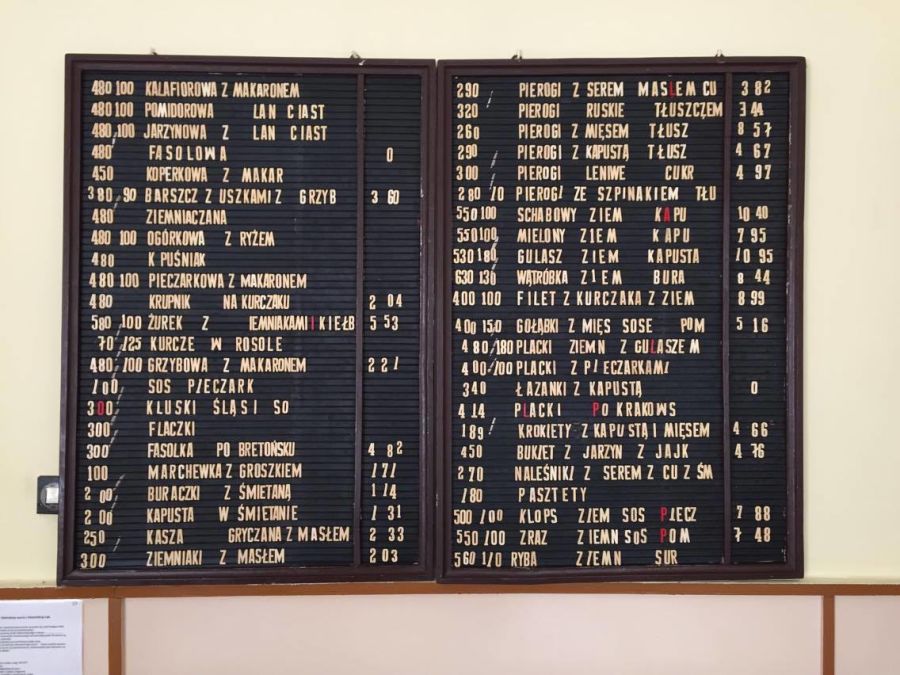 480 100 KALAFIOROWA Z MAKARONEM
480 100 POMIDOROWA LAN CIAST
480 100 JARZYNOWA Z LAN CIAST
480 FASOLOWA 0
450 KOPERKOWA Z MAKAR
380 90 BARSZCZ Z USZKAMI Z GRZYB 3 60
480 ZIEMNIACZANA
480 100 OGÓRKOWA Z RYŻEM
480 K PUŚNIAK
480 100 PIECZARKOWA Z MAKARONEM
480 KRUPNIK NA KURCZAKU 2 04
580 100 ŻUREK Z IEMNIAKAMI I KIEŁB 5 53
70 /25 KURCZE W ROSOLE
480 /00 GRZYBOWA Z MAKARONEM 2 2/
/00 SOS P/ECZARK
300 KLUSKI ŚLĄSI SO
300 FLACZKI
300 FASOLKA PO BRETOŃSKU 4 82
100 MARCHEWKA Z GROSZKIEM /7/
200 BURACZKI Z ŚMIETANĄ 1/4
200 KAPUSTA W ŚMIETANIE / 31
250 KASZA GRYCZANA Z MASŁEM 2 33
300 ZIEMNIAKI Z MASŁEM 2 03
290 PIEROGI Z SEREM MASLEM CU 3 82
320 PIEROGI RUSKIE TŁUSZCZEM 3 44
260 PIEROGI Z MIĘSEM TŁUSZ 8 57
290 PIEROGI Z KAPUSTĄ TŁUSZ 4 67
300 PIEROGI LENIWE CUKR 4 97
280 /0 PIEROG/ ZE SZPINAKIEM TŁU
550 100 SCHABOWY ZIEM KAPU 10 40
550 100 MIELONY ZIEM KAPU 7 95
530 180 GULASZ ZIEM KAPUSTA /0 95
630 130 WĄTRÓBKA ZIEM BURA 8 44
400 100 FILET Z KURCZAKA Z ZIEM 8 99
400 150 GOŁĄBKI Z MIĘS SOSE POM 5 16
480 /80 PLACKI ZIEMN Z GULASZEM
400 /00 PLACKI Z P/ECZARKAM/
340 ŁAZANKI Z KAPUSTĄ 0
414 PLACKI PO KRAKOWS
189 KROKIETY Z KAPUSTĄ I MIĘSEM 4 66
450 BUKIET Z JARZYN Z JAJK 4 76
270 NALEŚNIKI Z SEREM Z CU Z ŚM
/80 PASZTETY
500 /00 KLOPS Z/EM SOS P/ECZ 7 88
550 /00 ZRAZ Z IEMN SOS POM 7 48
560 1/0 RYBA Z/EMN SUR